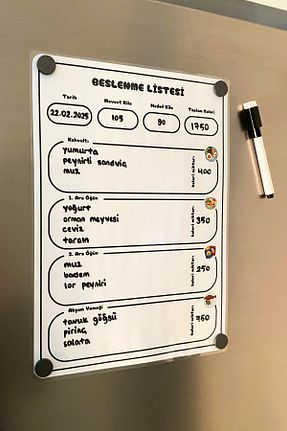 BESLENME LİSTESİ
Tarih Mevcut Kilo Hedef Kilo Toplam Kalori
22.02.2025 105 90 1750
Kahvaltı
yumurta
peynirli sandviç
muz
kalori miktarı: 400
1. Ara Öğün
yoğurt
orman meyvesi
ceviz
tarçın
kalori miktarı: 350
2. Ara Öğün
muz
badem
lor peyniri
kalori miktarı: 250
Akşam Yemeği
tavuk göğsü
pirinç
salata
kalori miktarı: 750